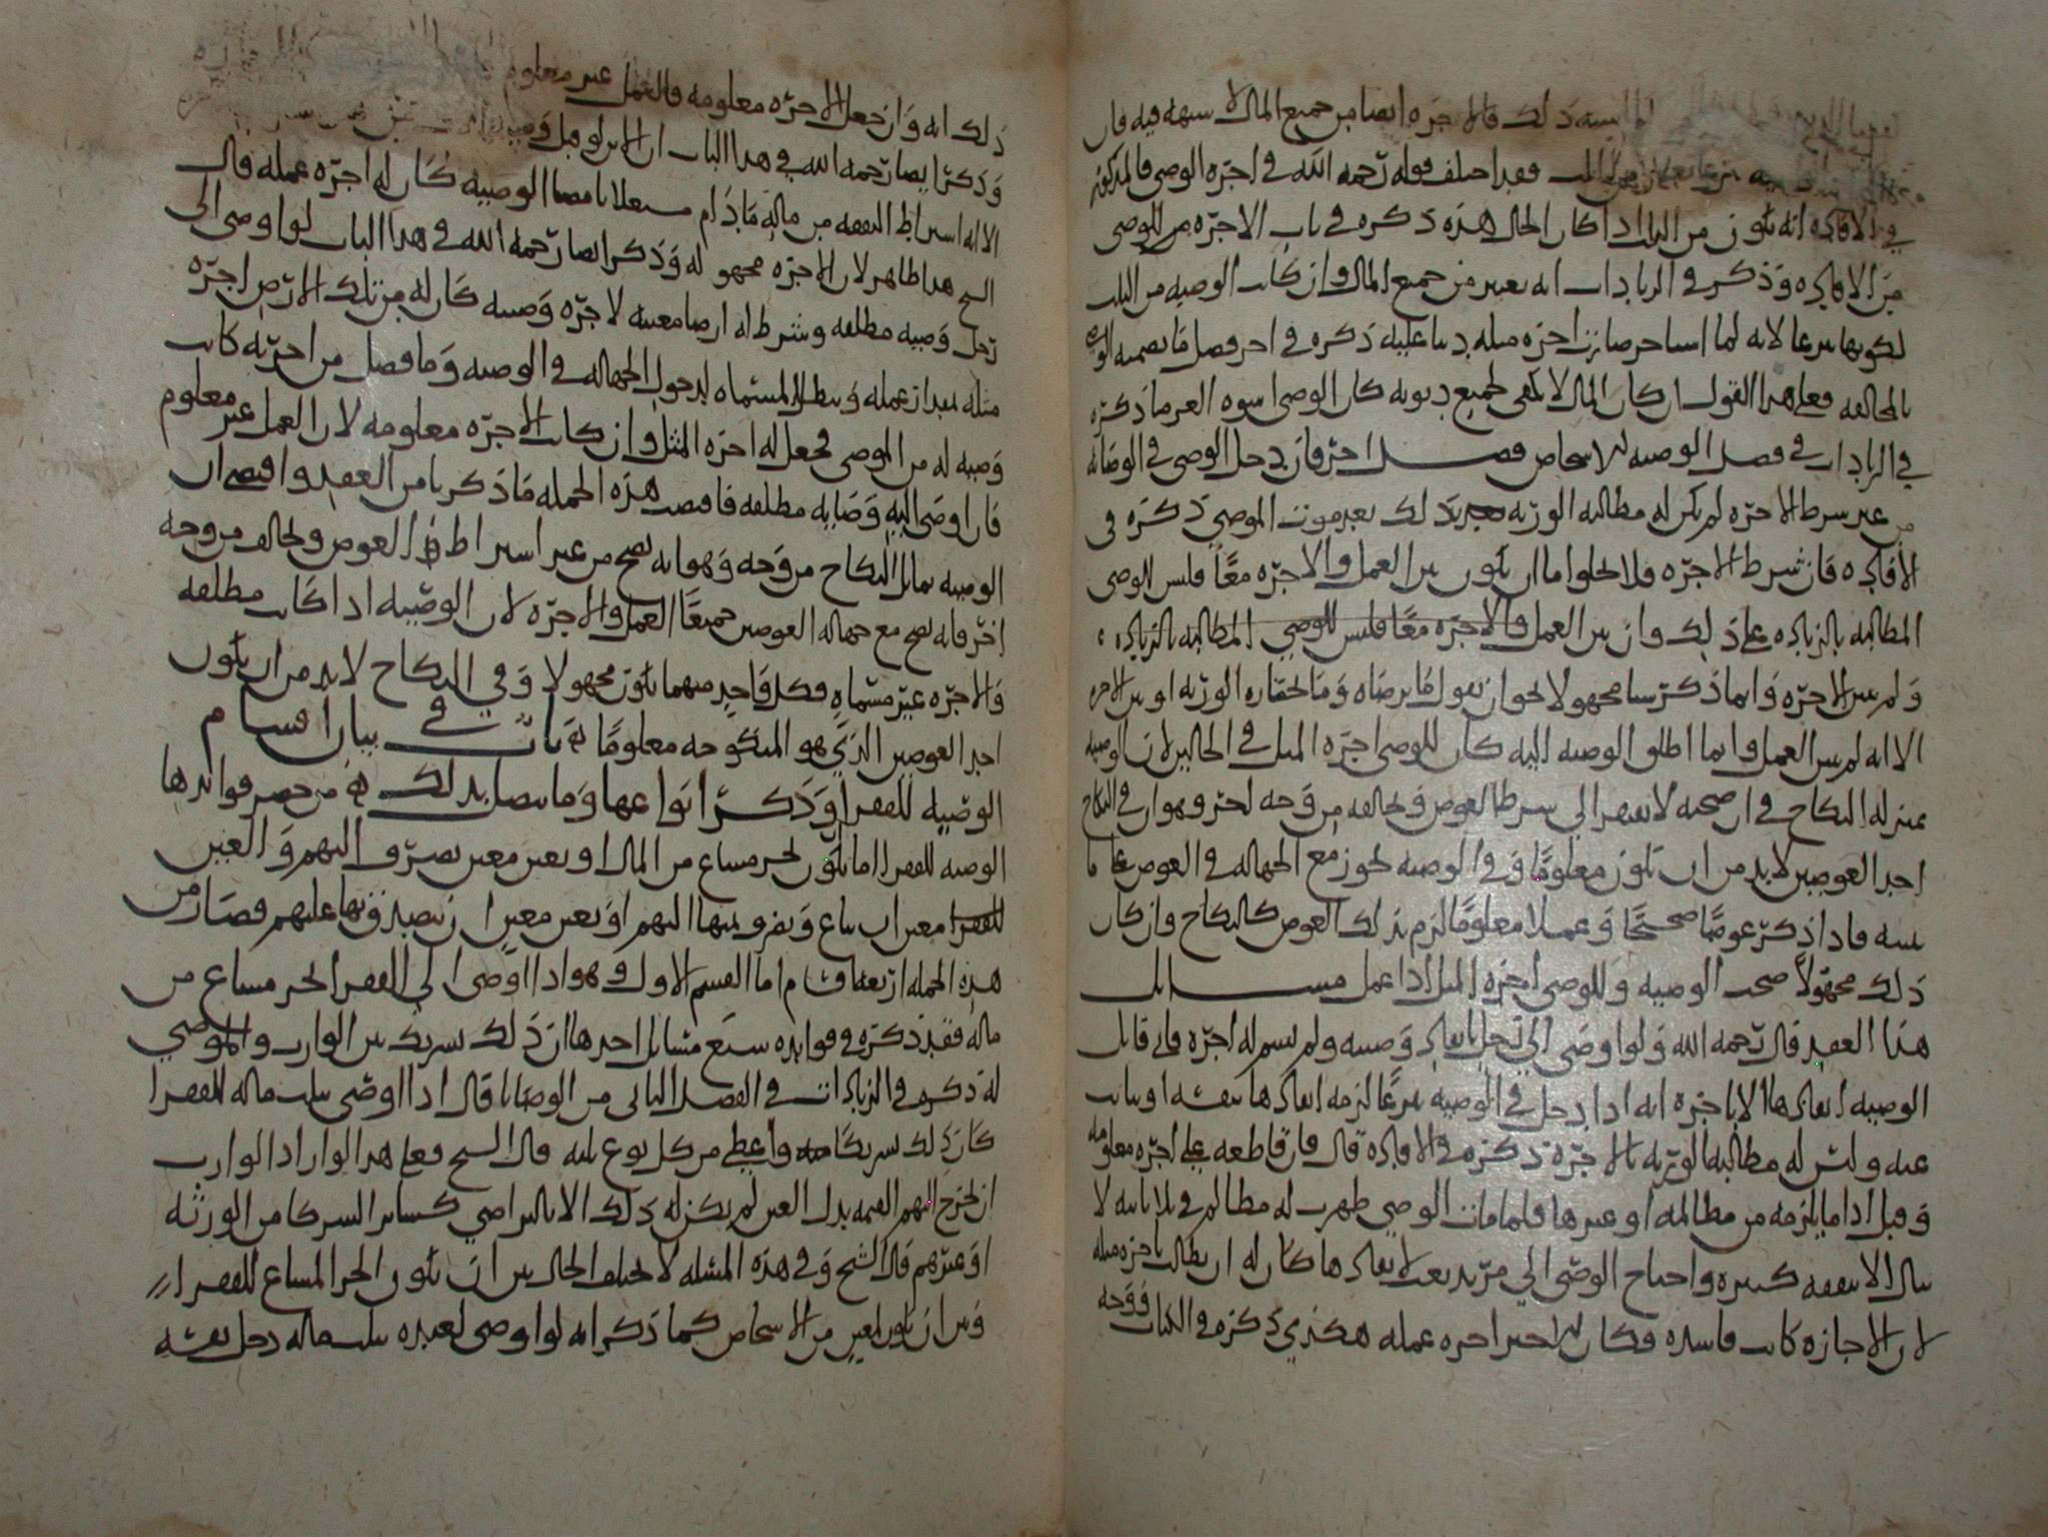 ذلك فالاجرة ايضا من جميع المال لا شبهة فيه فان
فقد اختلف قوله رحمه الله في اجرة الوصي فالمذكور
في الافادة انه يكون من الثلث اذا كان الحال هذه ذكره في باب الاجرة من للوصي
من الافادة وذكر في الزيادات انه يعتبر من جميع المال وان كانت الوصية من الثلث
لكونها تبرعا لانه لما صارت اجرة مثله دينا عليه ذكره في اخر فصل ما يضمنه الوصي
بالمخالفة فعلى هذا القول ان كان المال لا يكفي لجميع ديونه كان الوصي اسوة الغرما ذكره
في الزيادات في فصل الوصية للاشخاص فصل اخر فان دخل الوصي في الوصاية
من غير شرط الاجرة لم يكن له مطالبة الورثة بذلك بعد موت الموصي ذكره في
الافادة فان شرط الاجرة فلا يخلوا اما ان يكون بين العمل والاجرة معا فليس للوصي
المطالبة بالزيادة على ذلك وان بين العمل والاجرة معا فليس للوصي المطالبة بالزيادة
ولم يبين الاجرة وانما ذكر شيا مجهولا نحو ان يقول ما يرضاه وما يختاره الورثة او بين الاجرة
الا انه لم يبين العمل وانما اطلق الوصية اليه كان للوصي اجرة المثل في الحالين لان الوصية
بمنزلة النكاح في ان صحته لا تفتقر الى شرط العوض وتخالفه من وجه اخر وهو ان في النكاح
احد العوضين لا بد من ان يكون معلوما وفي الوصية يجوز مع الجهالة في العوض على ما
نبينه فاذا ذكر عوضا صحيحا وعملا معلوما لزم ذلك العوض كالنكاح وان كان
ذلك مجهولا صحت الوصية وللوصي اجرة المثل اذا عمل مسائل
هذا العقد قال رحمه الله ولو اوصى الى رجل بانفاذ وصيته ولم يسم له اجرة فابى قابل
الوصية انفاذها الا باجرة انه اذا دخل في الوصية تبرعا لزمه انفاذها بنفسه او نايب
عنه وليس له مطالبة الورثة بالاجرة ذكره في الافادة قال فان قاطعه على اجرة معلومة
وقبل اداما يلزمه من مظالمه او غيرها فلما مات الوصي ظهرت له مظالم في بلاد نايية لا
تنال الا بنفقة كثيرة واحتاج الوصي الى مزيد تعب لانفاذها كان له ان يطالب باجرة مثله
لان الاجارة كانت فاسدة فكان له اخر اجرة عمله هكذى ذكره في الكتاب فوجه
ذلك انه وان جعل الاجرة معلومة فالعمل غير معلوم
وذكر ايضا رحمه الله في هذا الباب ان الابن لو قبل وصية
الا انه اشترط النفقة من ماله ما دام مشتغلا بامضا الوصية كان له اجرة عمله قال
الشيخ هذا ظاهر لان الاجرة مجهولة وذكر ايضا رحمه الله في هذا الباب لو اوصى الى
رجل وصية مطلقة وشرط له ارضا معينة لاجرة وصيته كان له من تلك الارض اجرة
مثله بمقدار عمله وتبطل المسماه لدخول الجهالة في الوصية وما فضل من اجرته كانت
وصية له من الموصي فجعل له اجرة المثل وان كانت الاجرة معلومة لان العمل غير معلوم
فان اوصى اليه وصاية مطلقة فاقتضت هذه الجملة ما ذكرنا من العقد واقتضى ان
الوصية تماثل النكاح من وجه وهو انه يصح من غير اشتراط العوض وتخالف من وجه
اخر فانه يصح مع جهالة العوضين جميعا العمل والاجرة لان الوصية اذا كانت مطلقة
والاجرة غير مسماه فكل واحد منهما يكون مجهولا وفي النكاح لا بد من ان يكون
احد العوضين الذي هو المنكوحة معلوما باب في بيان اقسام
الوصية للفقرا وذكر انواعها وما يتصل بذلك من حصر فوائدها
الوصية للفقرا اما يكون لجزء مشاع من المال او بعين معين يصرف اليهم والعين
للفقرا معين ان يباع ويفرق ثمنها اليهم او بعين معين ان يتصدق بها عليهم فصار من
هذه الجملة اربعة اقسام اما القسم الاول وهو اذا اوصى الى الفقرا لجزء مشاع من
ماله فقد ذكره في فوايده سبع مسائل احدها ان ذلك شريك بين الوارث والموصي
له ذكره في الزيادات في الفصل الثاني من الوصايا قال اذا اوصى بثلث ماله للفقرا
كان ذلك شريكا واعطي من كل نوع ثلثه قال الشيخ فعلى هذا لو اراد الوارث
ان يخرج اليهم القيمة بدل العين لم يكن له ذلك الا بالتراضي كسائر الشركا من الورثة
او غيرهم قال الشيخ وفي هذه المسئلة لا يختلف الحال بين ان يكون الجزء المشاع للفقرا
وبين ان يكون لمعين من الاشخاص كما ذكر انه لو اوصى لعبده بثلث ماله دخل نفسه